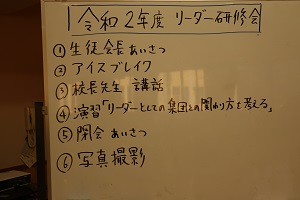 令和2年度 リーダー研修会
① 生徒会長 あいさつ
② アイスブレイク
③ 校長先生 講話
④ 演習「リーダーとしての集団との関わり方を考える」
⑤ 閉会 あいさつ
⑥ 写真撮影